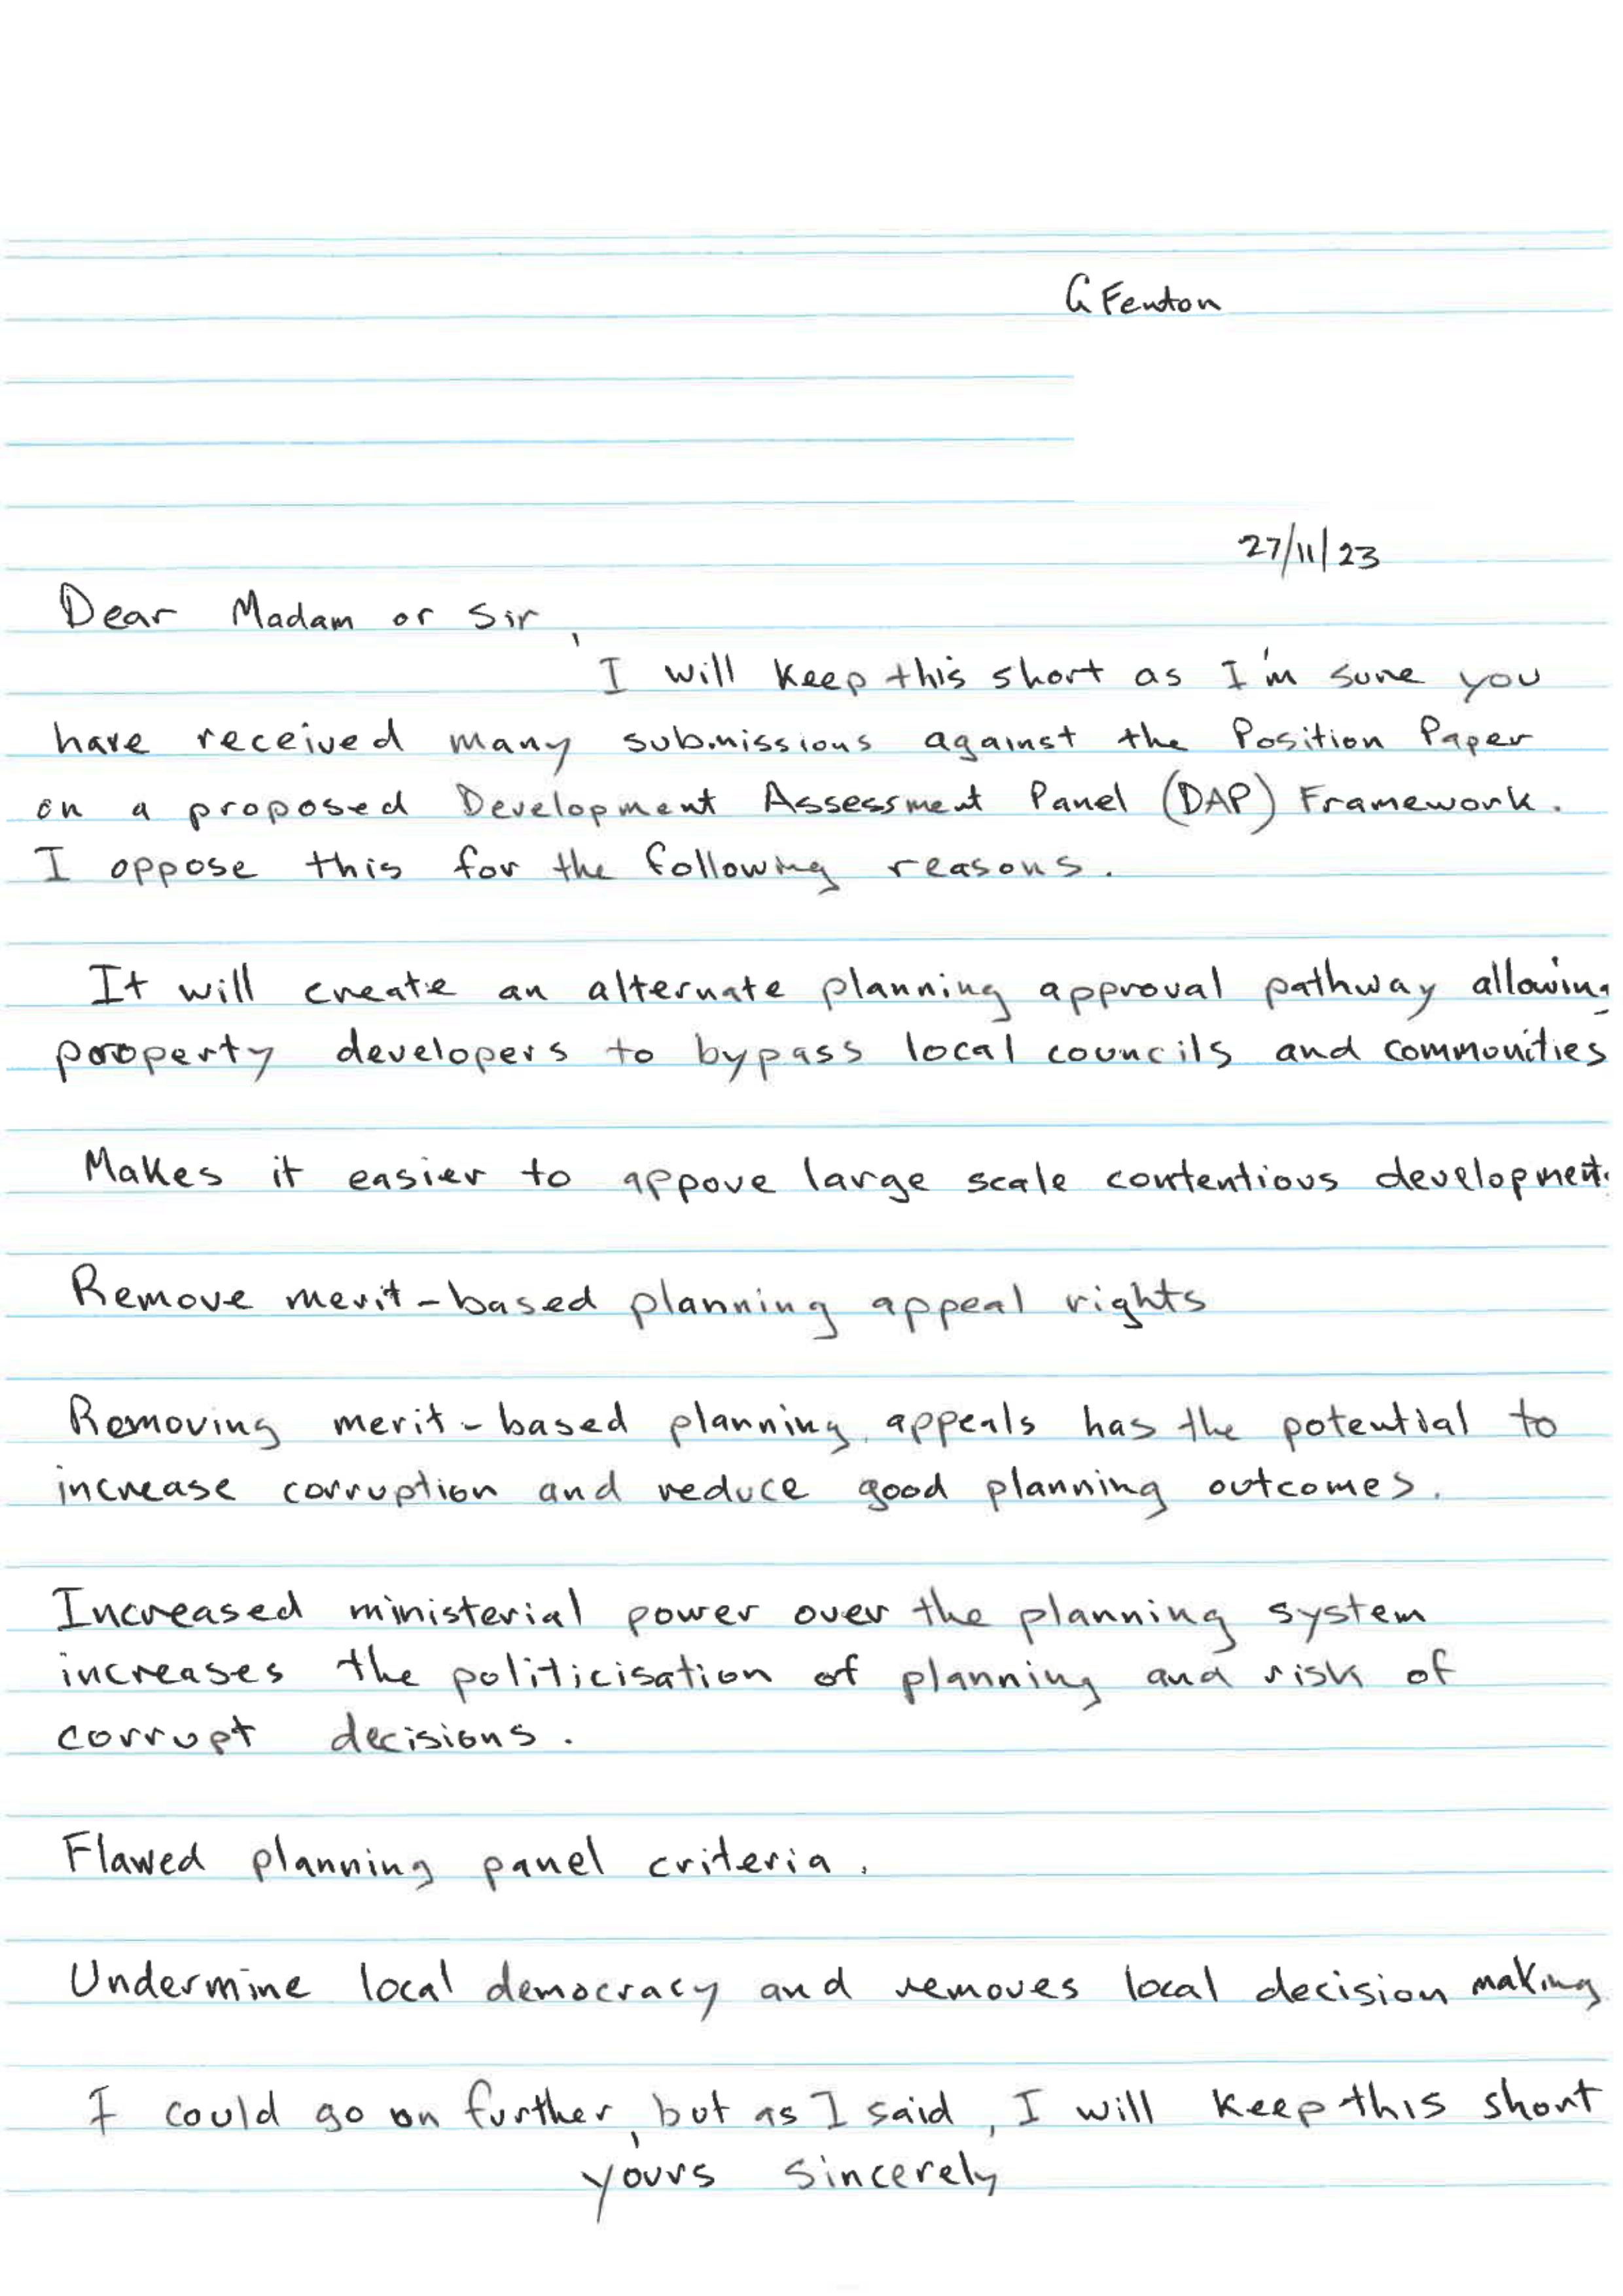 G Fenton
27/11/23
Dear Madam or Sir,
I will keep this short as I'm sure you
have received many submissions against the Position Paper
on a proposed Development Assessment Panel (DAP) Framework.
I oppose this for the following reasons.
It will create an alternate planning approval pathway allowing
property developers to bypass local councils and communities
Makes it easier to appove large scale contentious development.
Remove merit-based planning appeal rights
Removing merit-based planning appeals has the potential to
increase corruption and reduce good planning outcomes.
Increased ministerial power over the planning system
increases the politicisation of planning and risk of
corrupt decisions.
Flawed planning panel criteria.
Undermine local democracy and removes local decision making
I could go on further, but as I said, I will keep this short
yours sincerely